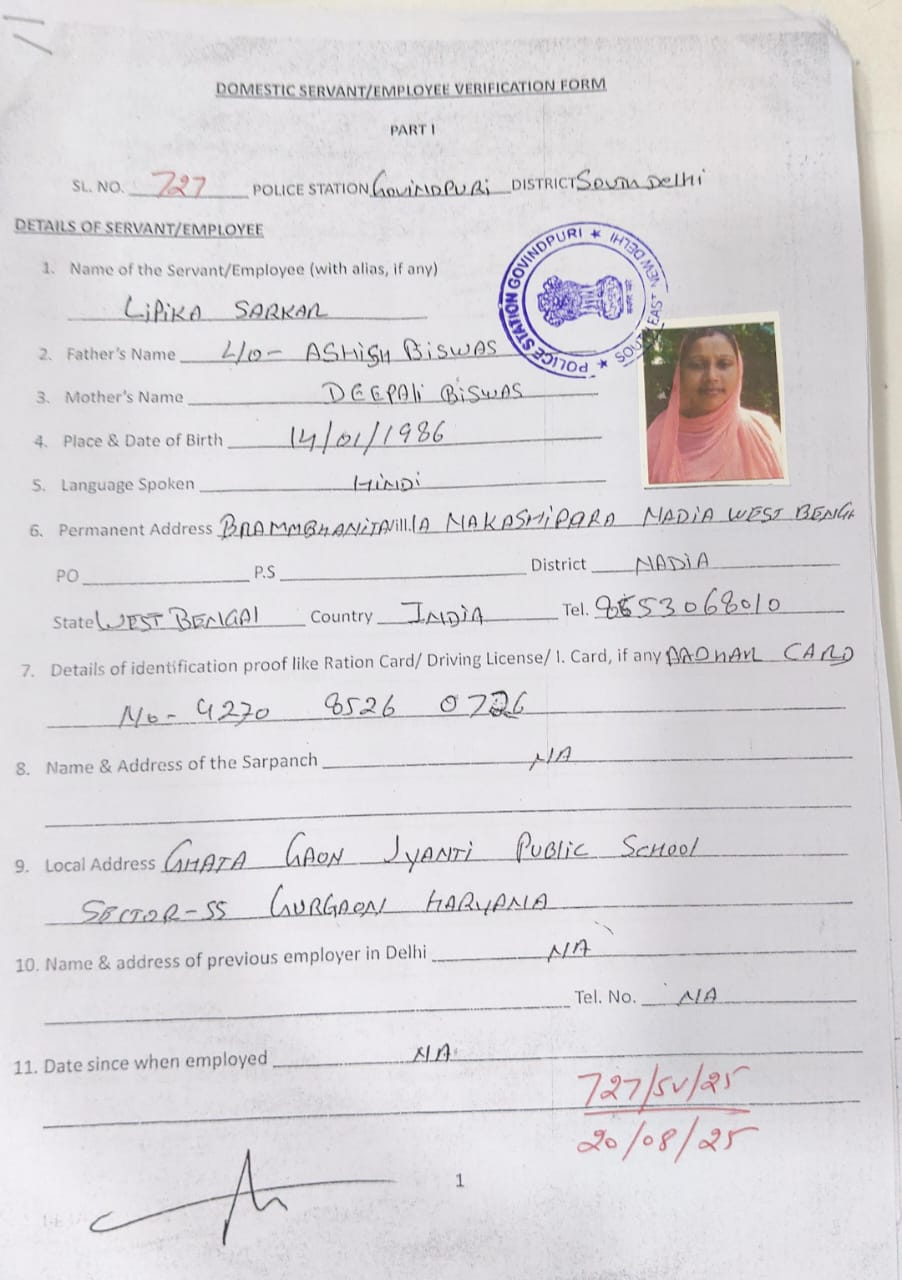 DOMESTIC SERVANT/EMPLOYEE VERIFICATION FORM
PART I
SL. NO. 727 POLICE STATION GOVINDPURI DISTRICT SOUTH DELHI
DETAILS OF SERVANT/EMPLOYEE
POLICE STATION GOVINDPURI ★ SOUTH EAST NEW DELHI ★
1. Name of the Servant/Employee (with alias, if any)
LIPIKA SARKAR
2. Father's Name ASHISH BISWAS
3. Mother's Name DEEPALI BISWAS
4. Place & Date of Birth 14/01/1986
5. Language Spoken HINDI
6. Permanent Address NAKASHIPARA NADIA WEST BENGA
PO P.S District NADIA
State WEST BENGAl Country INDIA Tel.
7. Details of identification proof like Ration Card/ Driving License/ I. Card, if any CARD
No- 4270 8526
8. Name & Address of the Sarpanch N/A
9. Local Address GHATA GAON JYANTI PUBLIC SCHOOL
SECTOR-55 GURGAON HARYANA
10. Name & address of previous employer in Delhi N/A
Tel. No. N/A
11. Date since when employed N/A
727/SV/25
20/08/25
1